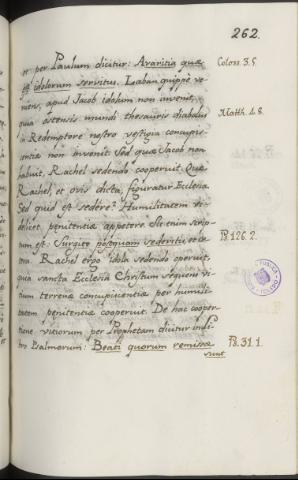 262.
et per Paulum dicitur: Avaritia quæ
est idolorum servitus. Laban quippè ve-
niens, apud Jacob idolum non invenit,
quia ostensis mundi thesauris diabolus
in Redemptore nostro vestigia concupis-
centiæ non invenit. Sed quæ Jacob non
habuit, Rachel sedendo cooperuit. Quæ
Rachel, et ovis dicta, figuratur Ecclesia.
Sed quid est sedere? Humilitatem vi-
delicet pœnitentiæ appetere. Sic enim scrip-
tum est: Surgite postquam sederitis, et cæ-
tera. Rachel ergo idola sedendo operuit,
quia sancta Ecclesia Christum sequens vi-
tium terrenæ concupiscentiæ per humili-
tatem pœnitentiæ cooperuit. De hac cooper-
tione vitiorum per Prophetam dicitur
Psalmorum: Beati quorum remissæ
sunt
Coloss. 3.5.
Matth. 4.8.
Ps. 126.2.
Ps. 31.1.